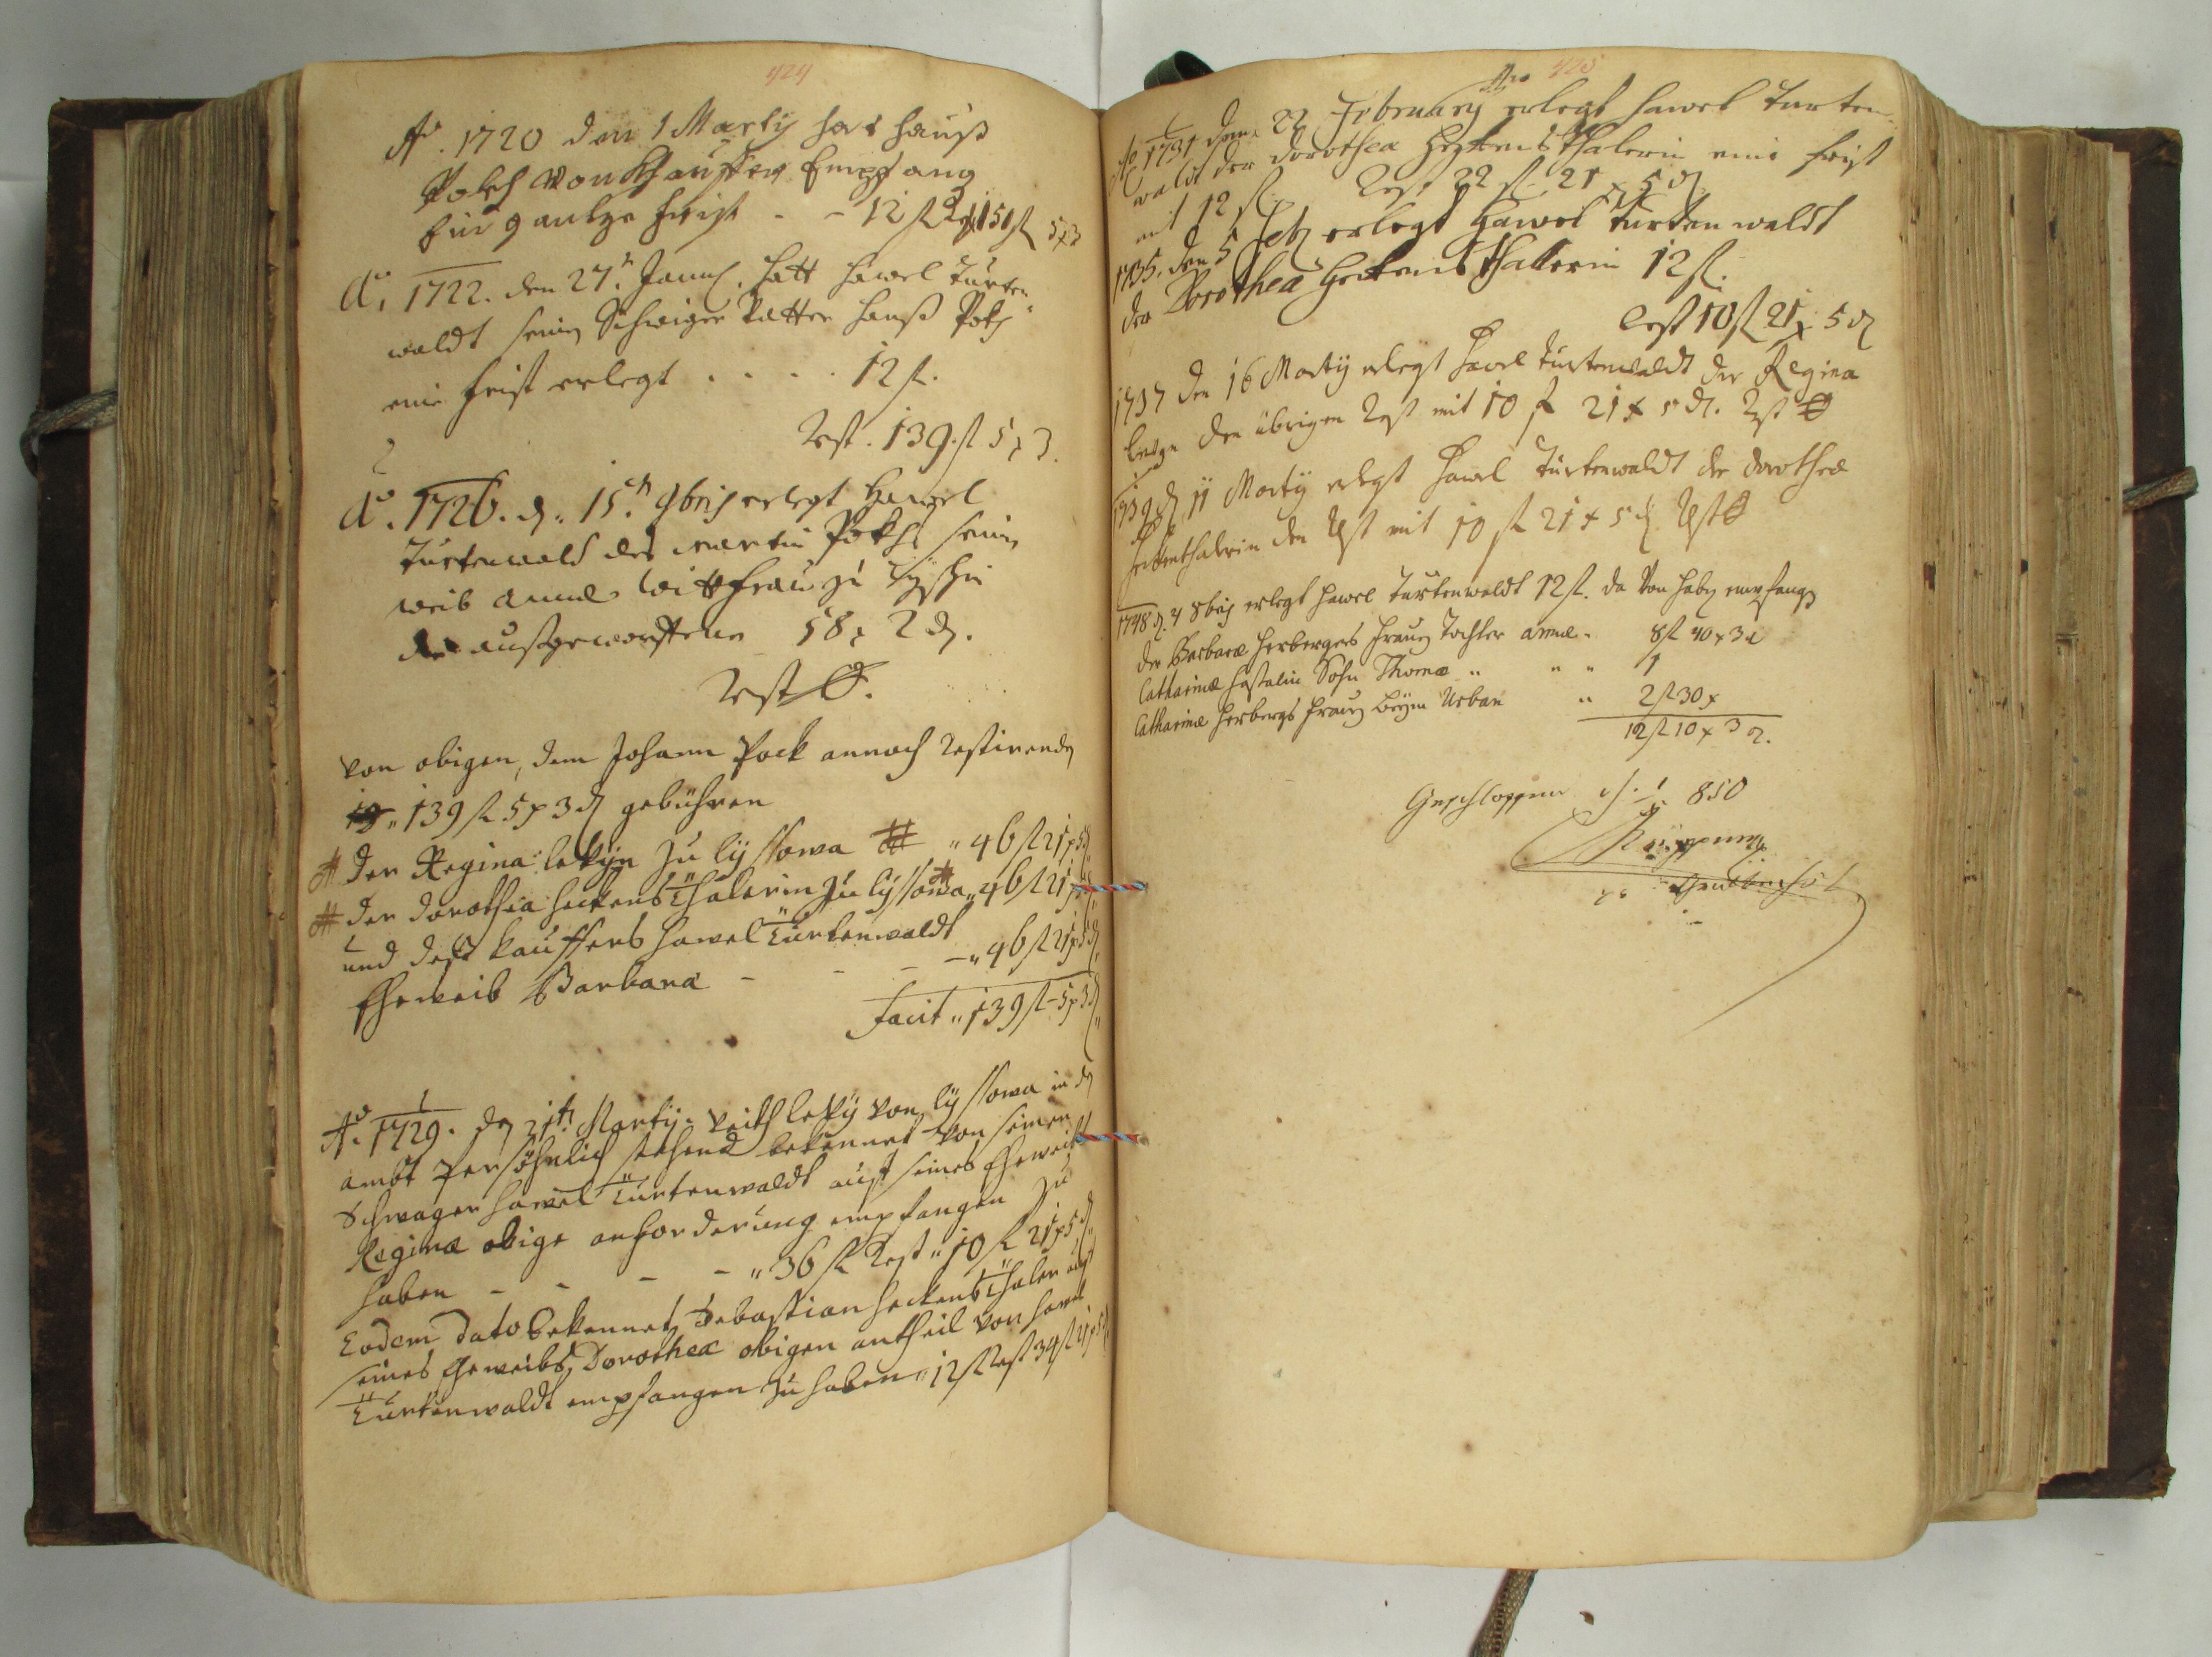 424
Ao. 1720 den 1 Marty hat Hanß
Pokh von Khauffer Empfang
Ein gantze frist - - 12 fl Rest 151 fl 5 x 3
Ao. 1722. den 27n. hatt Hawel Türten-
waldt seinen Schwiger Vatter Hanß Pokh
eine frist erlegt . . . . 12 fl.
Rest. 139. fl 5 x 3.
Ao. 1726. d. 15tn. 9bris erlegt Hawel
Türtenwald des Martin Pokhs seine
weib Anna Wittfrau zu
die außgeworffene 58 x 2 d.
Rest 0.
Von obigen, dem Johann Pock annoch Restirende
139 fl 5 x 3 d gebühren
der Regina lekÿn zu lÿssowa " 46 fl 21 x 5 d
der dorothea heckensthalerin zu lÿssowa " 46 fl 21 x 5 d
und deß kauffers hawel Türtenwaldt
Eheweib Barbara - - - - " 46 fl 21 x 5 d
Facit " 139 fl - 5 x 3 d
Ao. 1729. den 21tn Martÿ: Veith lekÿ von lÿssowa in
ambt Persöhnlich stehend bekennet von seinen
Schwager hawel Türtenwaldt auf seines Eheweib
Reginæ obige anforderung empfangen zu
haben - - - - " 36 fl Rest " 10 fl 21 x 5 d
Eodem dato bekennet Sebastian heckensthaler auf
seines Eheweibs Dorothea obigen antheil von hawel
Türtenwaldt empfangen zu haben " 12 fl Rest 34 fl 21 x 5 d
425
Ao 1731 den 22 February erlegt Hawel Turten-
waldt der Dorothea Heckensthalerin eine frist
mit 12 fl. Rest 22 fl. 21 x 5 d
1735. den 5 erlegt Hawel Turtenwaldt
der Dorothea Heckensthallerin 12 fl.
Rest 10 fl 21 x 5 d
1737 den 16 Martÿ erlegt Hawel Türtenwaldt der Regina
den übrigen Rest mit 10 fl 21 x 5 d. Rest 0
1739 d 11 Martÿ erlegt Hawel Türtenwaldt der Dorothea
den Rest mit 10 fl 21 x 5 d Rest 0
1748 d. 4 8bris erlegt Hawel Türtenwaldt 12 fl. da Von haben empfangen
der Barbara Herbergers frauen Tochter Anna - 8 fl 40 x 3 d
Catharina Sohn Thoma " " " 1
Catharina Herbergs frauen Urban " 2 fl 30 x
12 fl 10 x 3 d.
Geschlossen 850